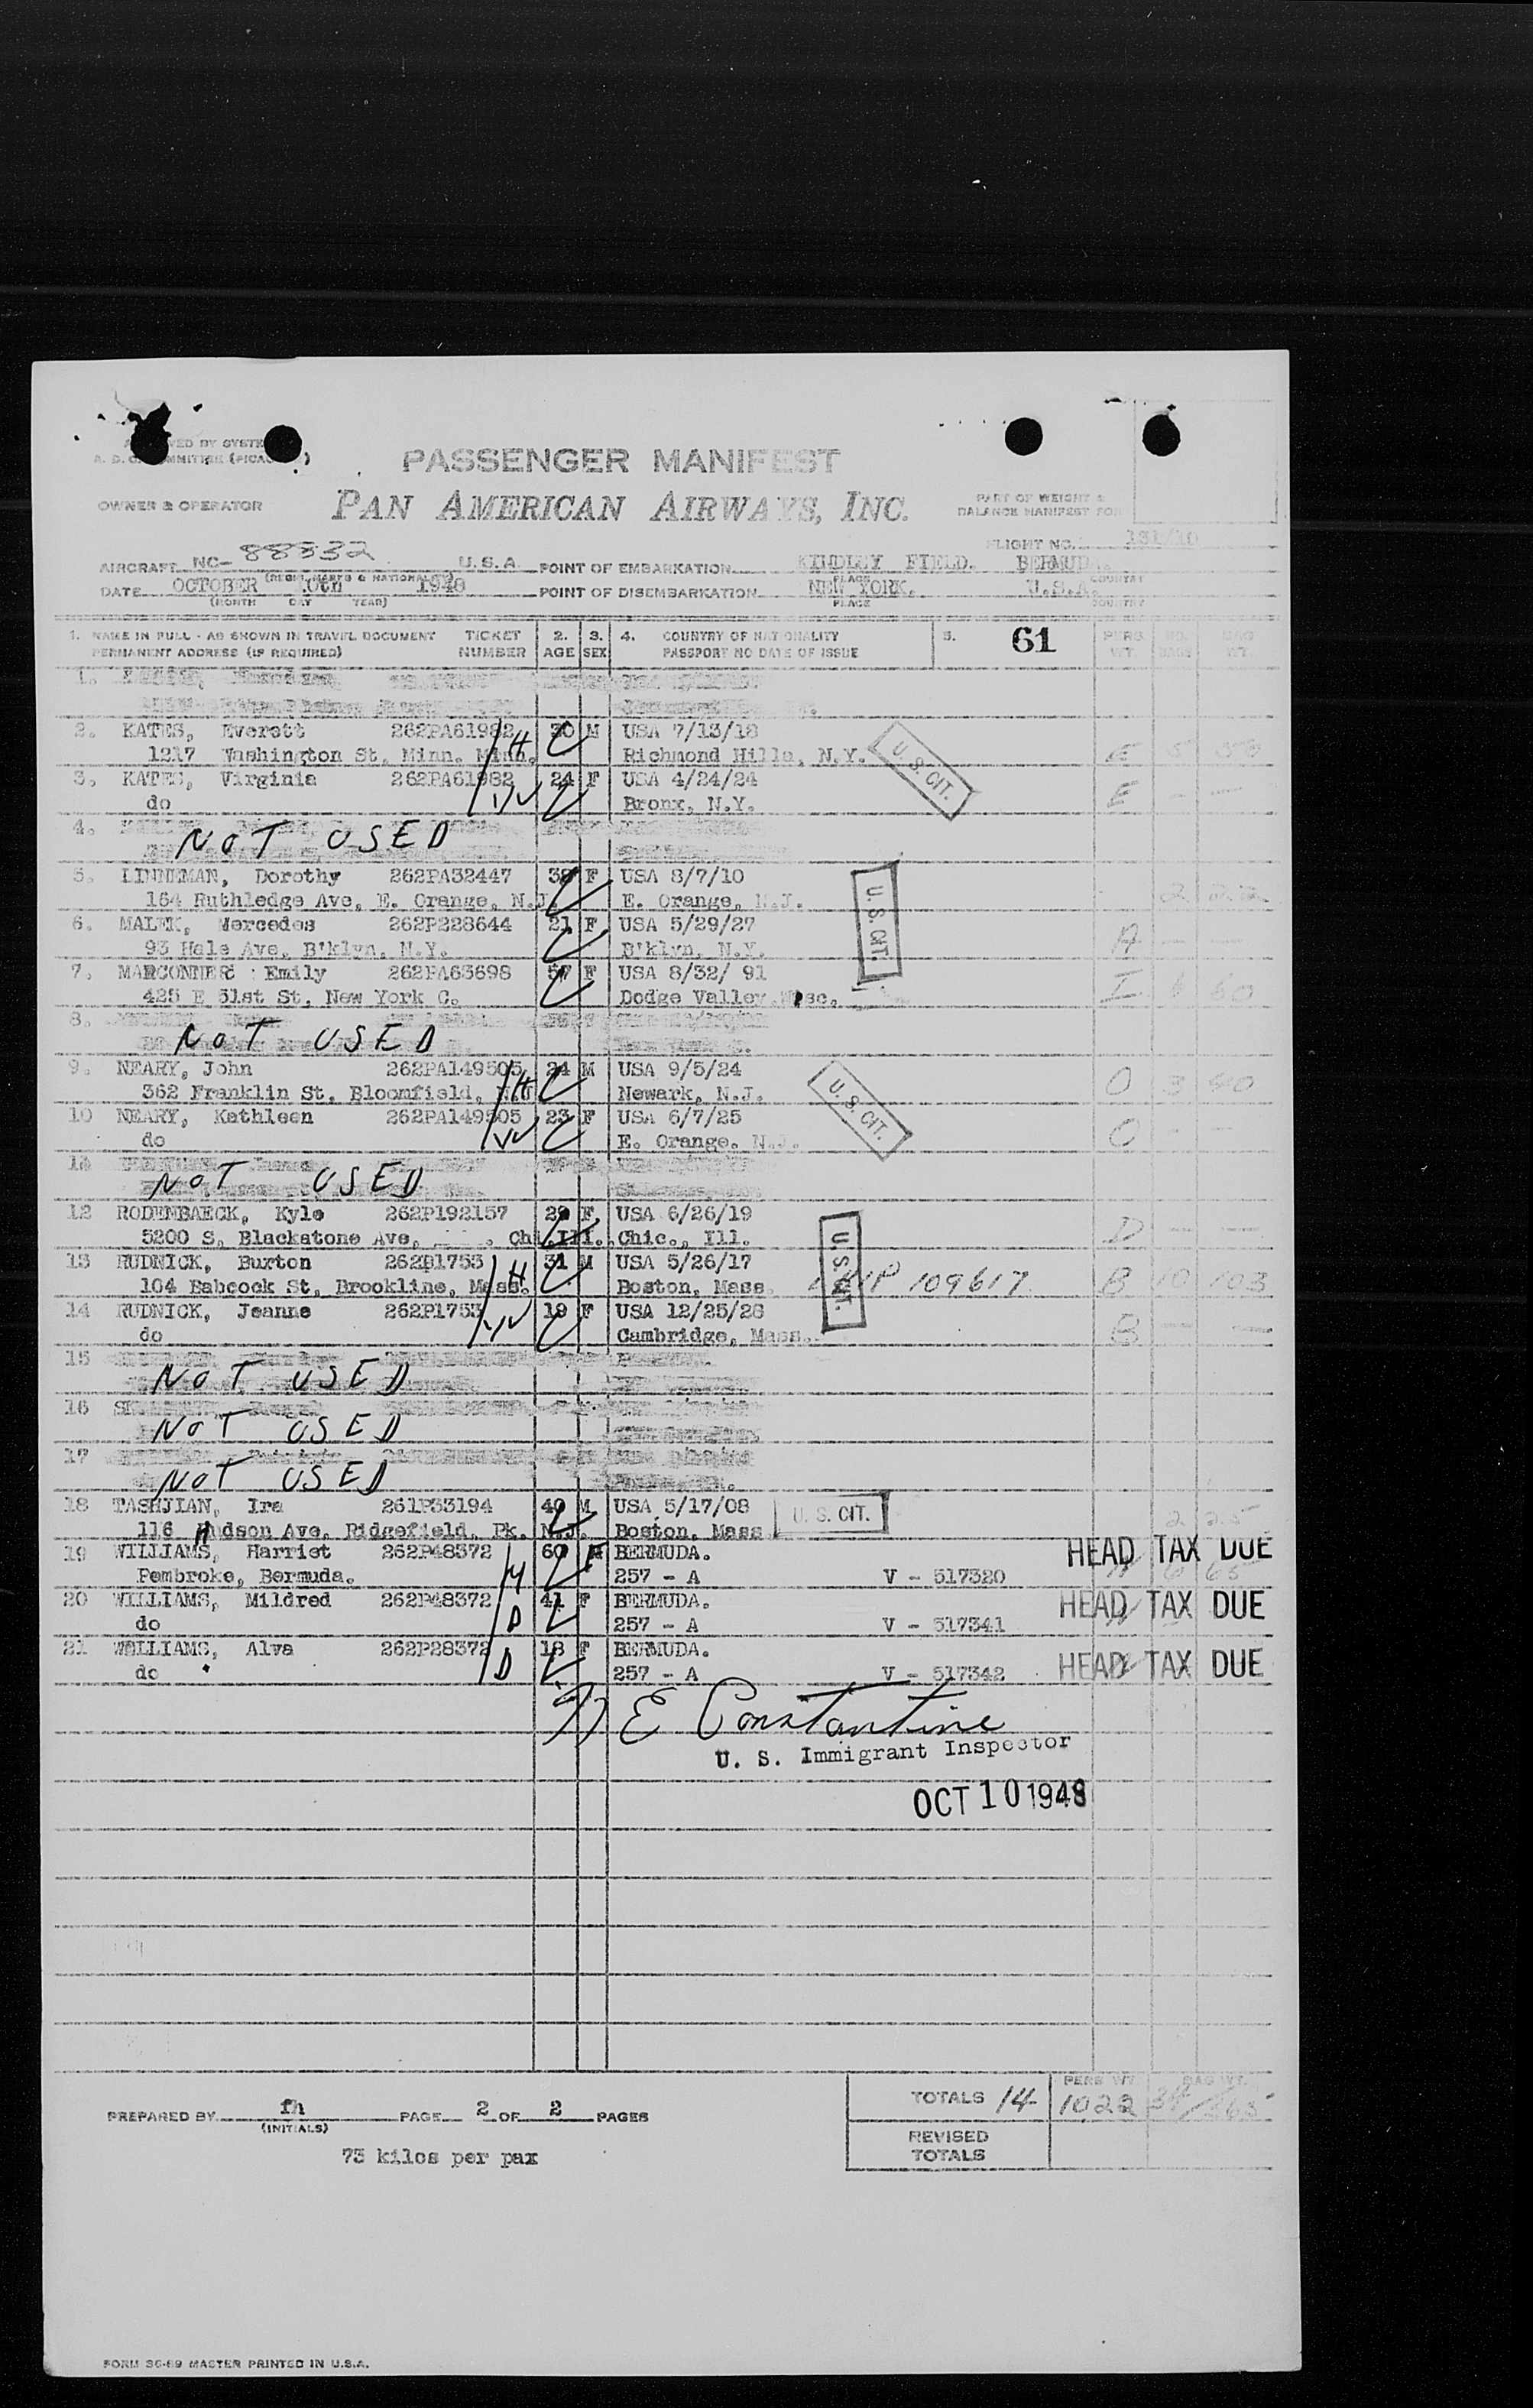 PASSENGER MANIFEST
OWNER & OPERATOR PAN AMERICAN AIRWAYS, INC. PART OF WEIGHT & BALANCE MANIFEST FOR
FLIGHT NO. 131/10
AIRCRAFT NC- 88832 U.S.A. POINT OF EMBARKATION KINDLEY FIELD. BERMUDA.
DATE OCTOBER 10th 1948 POINT OF DISEMBARKATION NEW YORK. U.S.A.
(MONTH DAY YEAR) PLACE COUNTRY
1. NAME IN FULL - AS SHOWN IN TRAVEL DOCUMENT TICKET 2. 3. 4. COUNTRY OF NATIONALITY 5. 61 PERS. NO. BAG
PERMANENT ADDRESS (IF REQUIRED) NUMBER AGE SEX PASSPORT NO DATE OF ISSUE WT. BAGS WT.
1.
2. KATES, Everett 262PA61982 30 M USA 7/13/18
1217 Washington St. Minn. Minn. H Richmond Hills, N.Y. U. S. CIT. E
3. KATES, Virginia 262PA61982 24 F USA 4/24/24
do W Bronx, N.Y. E
4. NOT USED
5. LINNEMAN, Dorothy 262PA32447 38 F USA 8/7/10
164 Ruthledge Ave, E. Orange, N.J. E. Orange, N.J. U. S. CIT. 2 22
6. MALEK, Mercedes 262P228644 21 F USA 5/29/27
93 Hale Ave, B'klyn, N.Y. B'klyn, N.Y. A
7. MARCONNER Emily 262PA63698 57 F USA 8/32/ 91
425 E 51st St, New York C. Dodge Valley Wisc. I 60
8. NOT USED
9. NEARY, John 262PA149505 24 M USA 9/5/24
362 Franklin St, Bloomfield, N.J. H Newark, N.J. U. S. CIT. O 3 40
10 NEARY, Kathleen 262PA149505 23 F USA 6/7/25
do W E. Orange, N.J. O
NOT USED
12 RODENBAECK, Kyle 262P192157 29 F USA 6/26/19
5200 S. Blackatone Ave, Chi. Ill. Chic., Ill. U. S. CIT. D
13 RUDNICK, Burton 262P1753 31 M USA 5/26/17
104 Babcock St, Brookline, Mass. H Boston, Mass. 109617 B 10 103
14 RUDNICK, Jeanne 262P1753 19 F USA 12/25/28
do W Cambridge, Mass. B
15 NOT USED
16 NOT USED
17 NOT USED
18 TASHJIAN, Ira 261P33194 40 M USA 5/17/08 U. S. CIT.
116 Hudson Ave, Ridgefield, Pk. N.J. Boston, Mass 2 25
19 WILLIAMS, Harriet 262P48372 60 F BERMUDA. HEAD TAX DUE
Pembroke, Bermuda. M 257 - A V - 517320
20 WILLIAMS, Mildred 262P48372 41 F BERMUDA. HEAD TAX DUE
do D 257 - A V - 517341
21 WILLIAMS, Alva 262P28372 18 F BERMUDA.
do D 257 - A V - 517342 HEAD TAX DUE
E Constantine
U. S. Immigrant Inspector
OCT 10 1948
PREPARED BY fh PAGE 2 OF 2 PAGES
(INITIALS)
TOTALS 14 PERS WT 1022 BAG WT.
REVISED TOTALS
73 kilos per pax
FORM 36-69 MASTER PRINTED IN U.S.A.